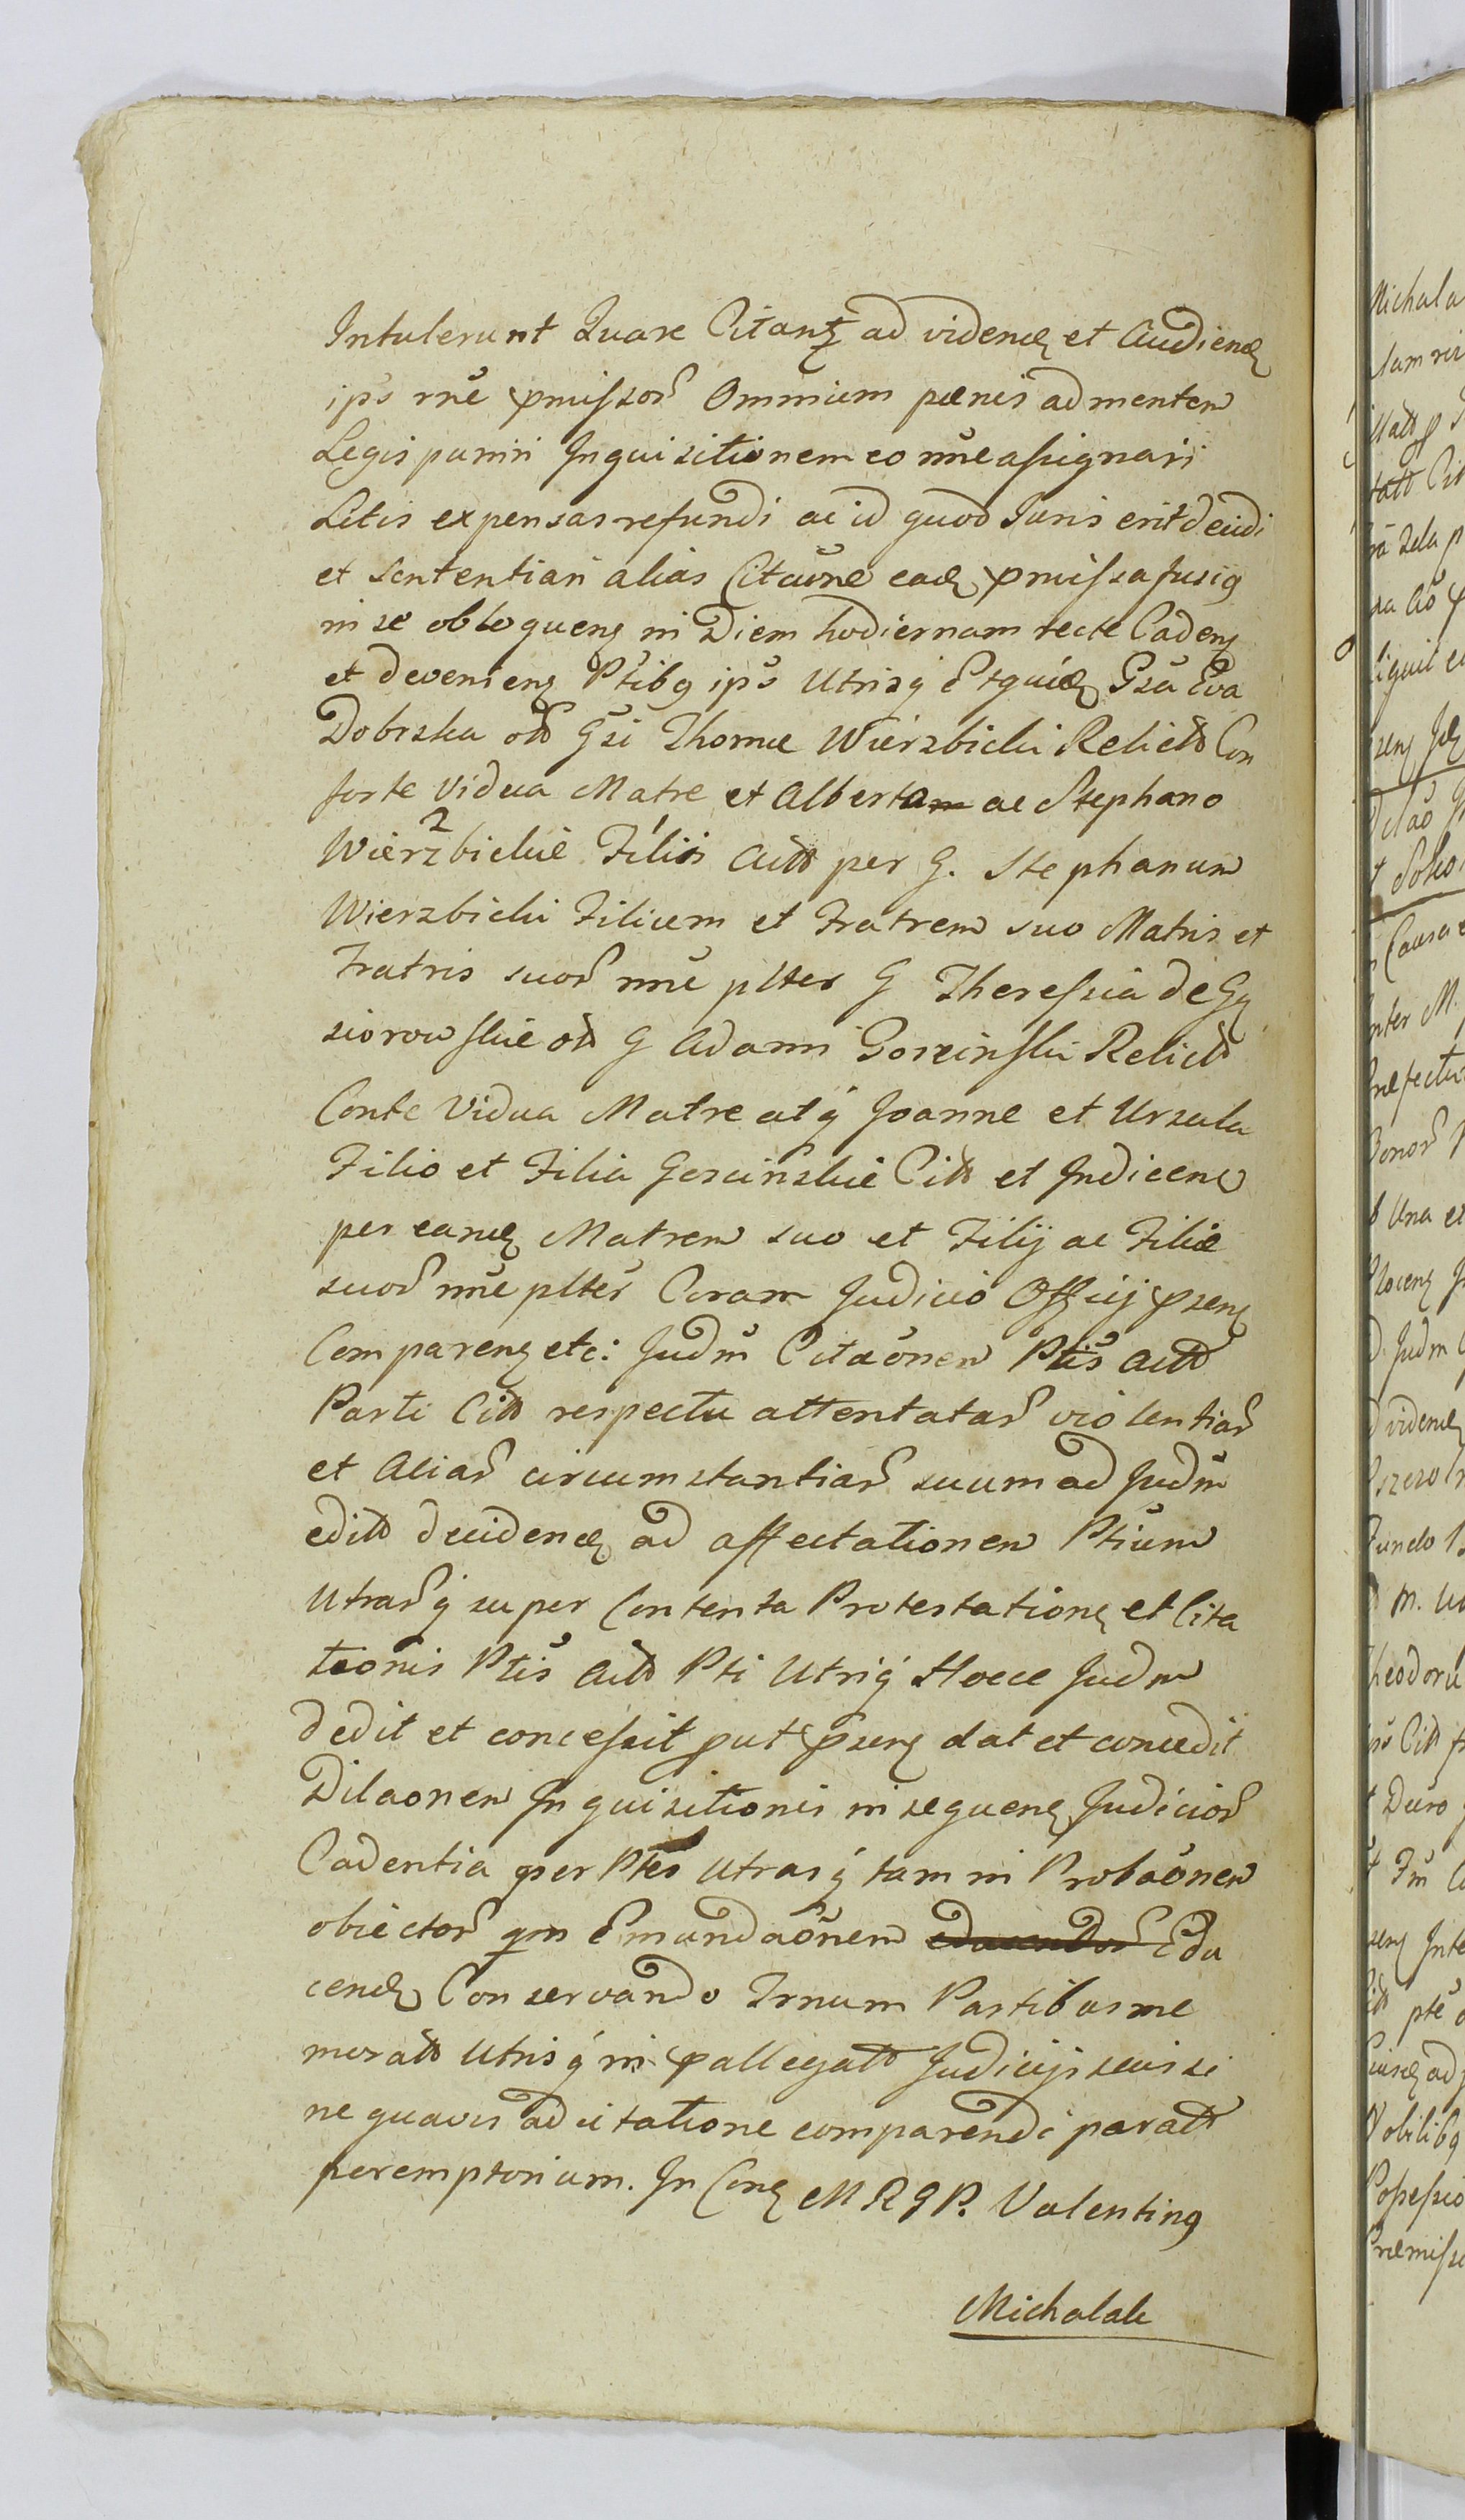 Intulerunt Quare Citantʒ ad videnɖ et Audienɖ
ips rne pmissor Omnium pænis ad mentem
Legis puniri Inquisitionem eo nne assignari
Litis expensas refundi ac id quod Juris erit decidi
et Sententiari alias Citaone eaɖ pmissa fusiq
in se obloquenʒ in Diem hodiernam recte Cadenʒ
et devenienʒ Ptibq ips Utrisq Gsa Eva
Dobrska ott Gsi Thomæ Wierzbicki Relictt Con
sorte Vidua Matre et Alberto ac Stephano
Wierzbickie Filiis Actt per G. Stephanum
Wierzbicki Filium et Fratrem suo Matris et
Fratris suor nne plter G Theressia de Gą
siorowskie ott G Adami Gorzinski Relictt
Conte Vidua Matre atq Joanne et Ursula
Filio et Filia Gorzinskie Citt et Judicem
per eanɖ Matrem suo et Filij ac Filiæ
suor nne plter Coram Judicio Officij psenʒ
Comparenʒ etc: Judm Citaonem Ptis Actt
Parti Citt respectu attentatar violentiar
et Aliar circumstantiar suum ad Judm
editt decidenɖ ad affectationem Ptium
Utrarq super Contenta Protestationʒ et Cita
tionis Ptis Actt Pti Utriq Hocce Judm
dedit et concessit put psenʒ dat et concedit
Dilaonem Inquisitionis in sequenʒ Judicior
Cadentia per Ptes Utrasq tam in Probaonem
obiector qm Emundaonem Edu
cenɖ Conservando Trnum Partibus me
moratt Utrisq in pallegatt Judicijs sui si
ne quavis adcitatione comparendi paratt
peremptorium. In Conʒ M R G P. Valentinq
Michalak